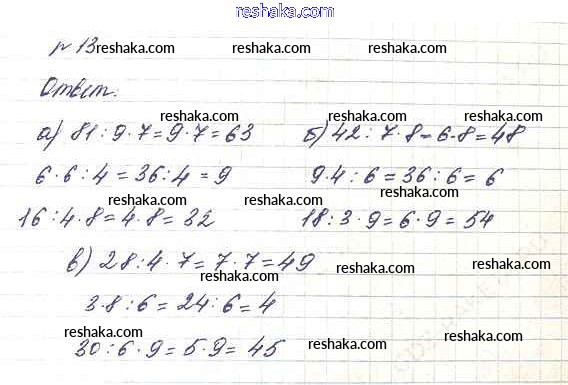 www.reshaka.com
№ 13 reshaka.com reshaka.com reshaka.com
Ответ.
reshaka.com reshaka.com reshaka.com
а) 81 : 9 · 7 = 9 · 7 = 63 б) 42 : 7 · 8 = 6 · 8 = 48
6 · 6 : 4 = 36 : 4 = 9 9 · 4 : 6 = 36 : 6 = 6
reshaka.com reshaka.com
reshaka.com reshaka.com reshaka.com
16 : 4 · 8 = 4 · 8 = 32 18 : 3 · 9 = 6 · 9 = 54
в) 28 : 4 · 7 = 7 · 7 = 49
reshaka.com reshaka.com reshaka.com
3 · 8 : 6 = 24 : 6 = 4
reshaka.com reshaka.com reshaka.com
30 : 6 · 9 = 5 · 9 = 45